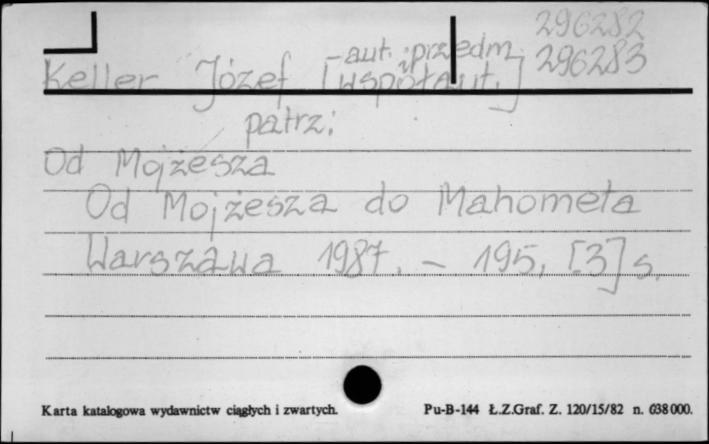 296282
- aut. przedm. i 296283
Keller Józef [współaut.]
patrz:
Od Mojżesza
Od Mojżesza do Mahometa
Warszawa 1987. - 195, [3] s.
Karta katalogowa wydawnictw ciągłych i zwartych. Pu-B-144 Ł.Z.Graf. Z. 120/15/82 n. 638 000.